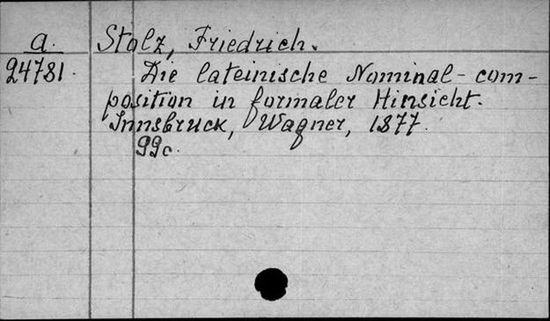 a. Stolz, Friedrich.
24781. Die lateinische Nominal-com-
position in formaler Hinsicht.
Innsbruck, Wagner, 1877.
99c.